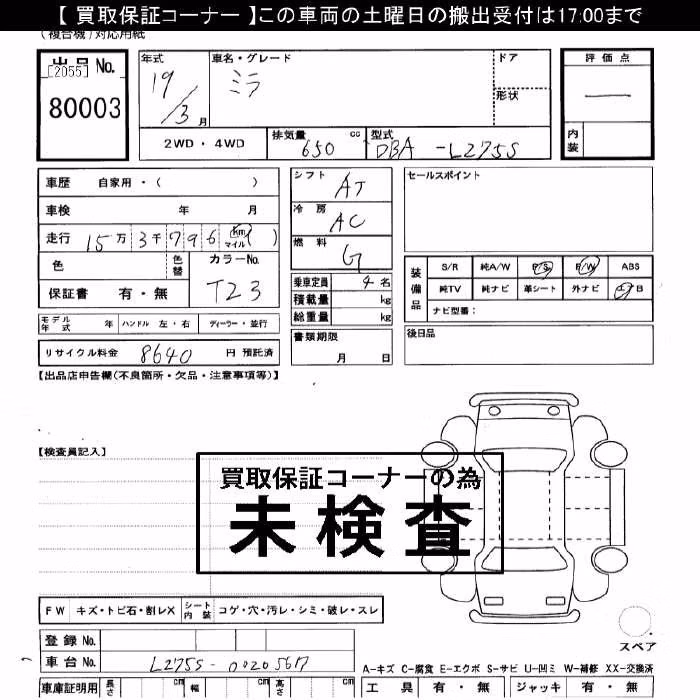 【 買取保証コーナー 】この車両の土曜日の搬出受付は17:00まで
(複合機)対応用紙
出品No.
[2055]
80003
年式
19/3月
車名・グレード
ミラ
ドア
形状
評価点
―
内装
2WD・4WD
排気量 650 cc
型式 DBA-L275S
車歴 自家用・( )
車検 年 月
走行 15万3千796 km マイル ( )
色
色替
カラーNo.
T23
保証書 有・無
シフト AT
冷房 AC
燃料 G
乗車定員 4名
積載量 kg
総重量 kg
セールスポイント
装備品
S/R 純A/W P/S P/W ABS
純TV 純ナビ 革シート 外ナビ エアB
ナビ型番:
モデル年式 年 ハンドル 左・右 ディーラー・並行
リサイクル料金 8640 円 預託済
書類期限
月 日
後日品
【出品店申告欄(不良箇所・欠品・注意事項等)】
【検査員記入】
買取保証コーナーの為
未検査
FW キズ・トビ石・割レX シート内装 コゲ・穴・汚レ・シミ・破レ・スレ
スペア
登録No.
車台No. L275S-0020567
A-キズ C-腐食 E-エクボ S-サビ U-凹ミ W-補修 XX-交換済
車庫証明用 長さ cm 幅 cm 高さ cm
工具 有・無 ジャッキ 有・無